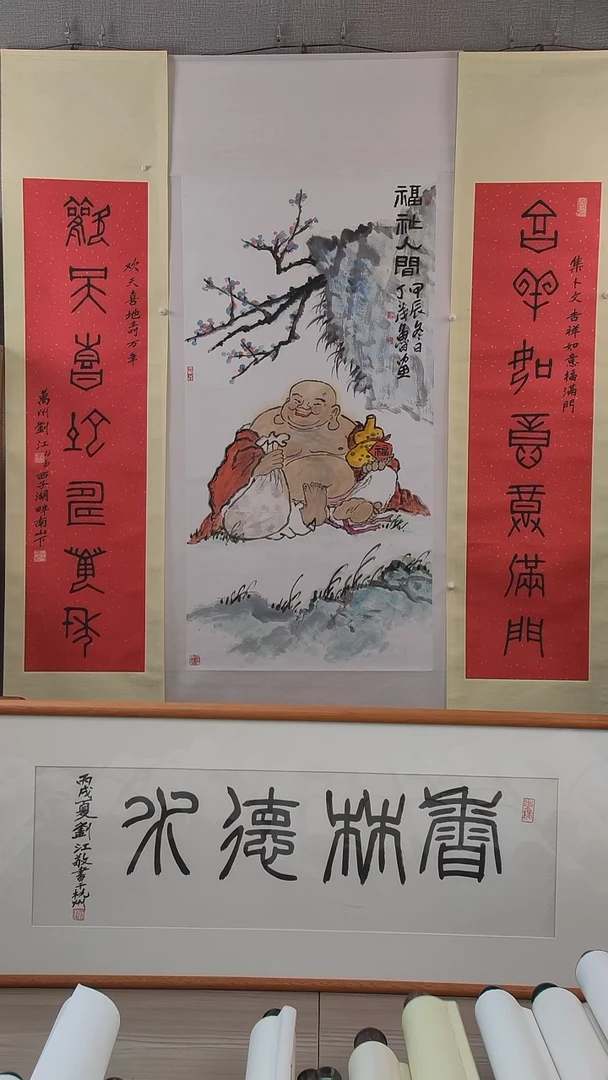 吉羊如意福滿門
集卜文 吉祥如意福满门
福祉人間
甲辰冬日
丁茂魯画
歡天喜地壽萬年
欢天喜地寿万年
萬州劉江
西子湖畔南山下
香林德水
丙戌夏劉江敬書于杭州
福